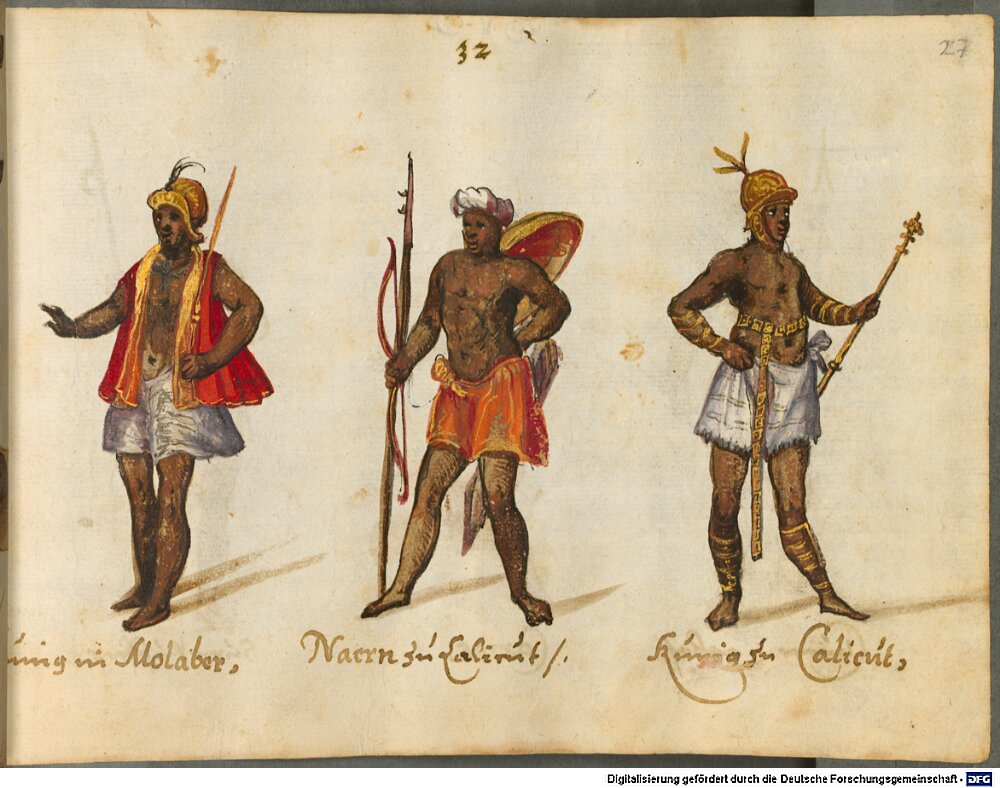 32
27
ünig in Molaber,
Naern zu Calicut /.
Künig zu Calicut,
Digitalisierung gefördert durch die Deutsche Forschungsgemeinschaft - DFG